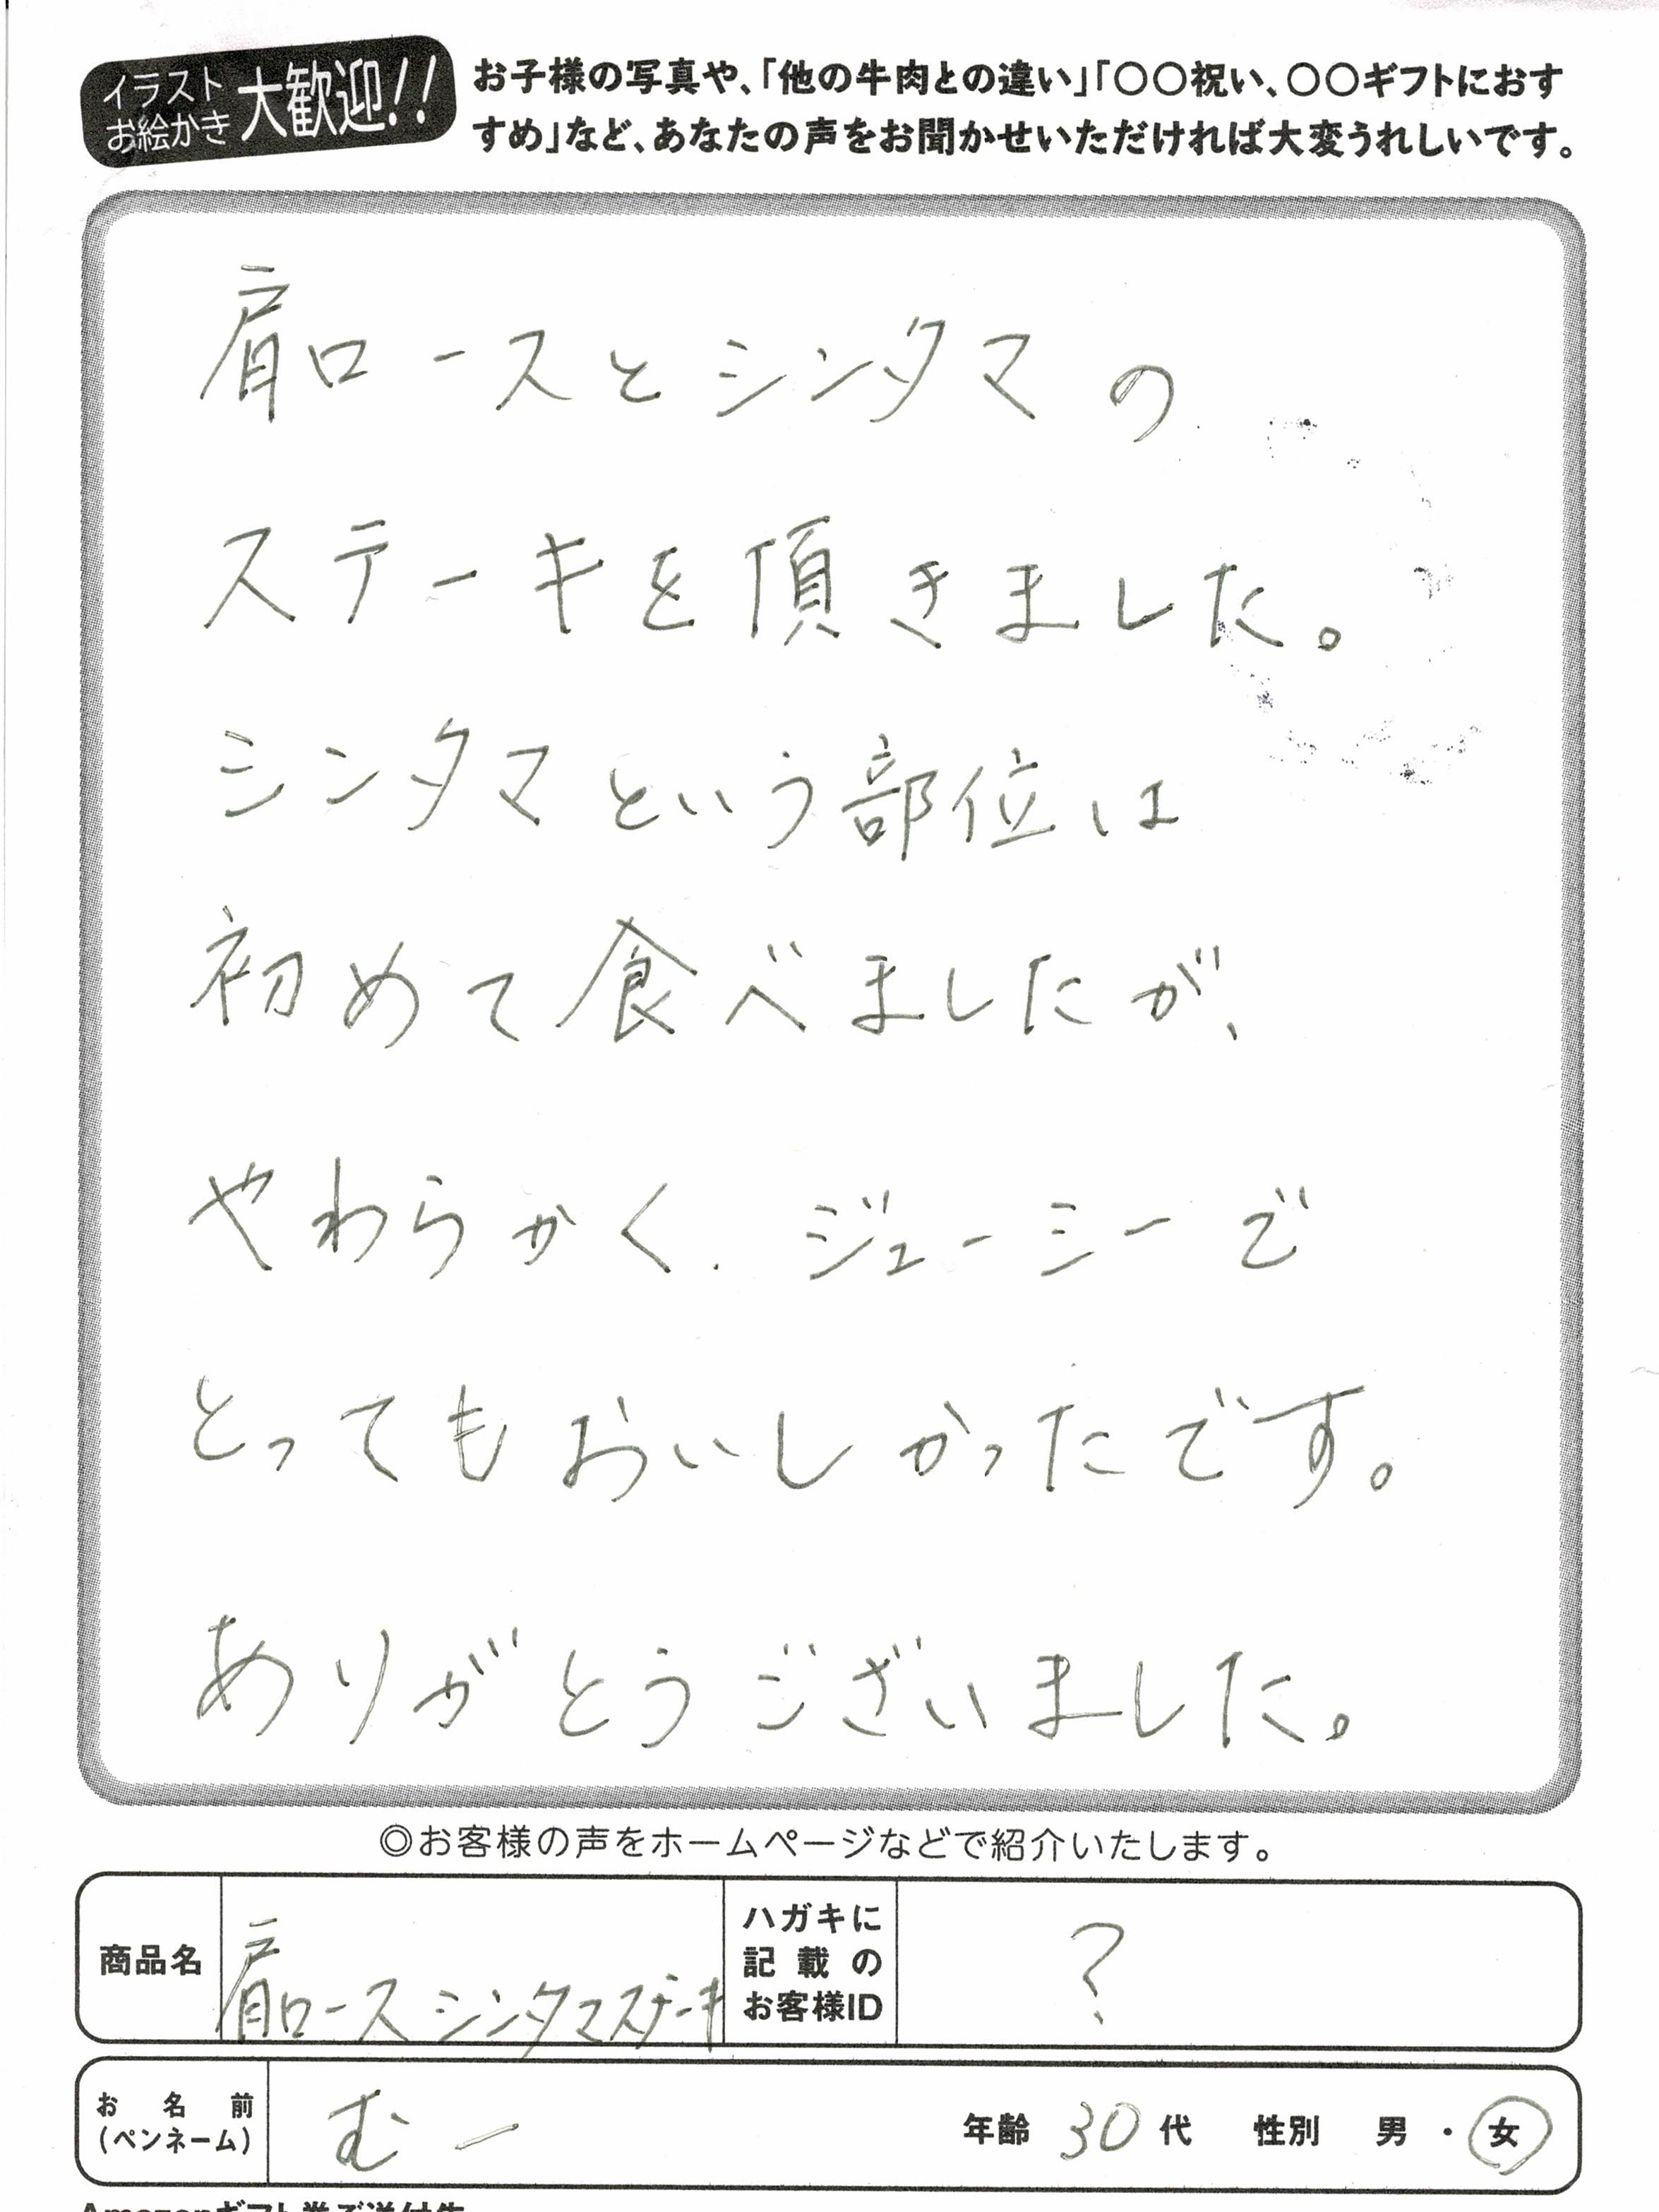 イラスト
お絵かき
大歓迎!!
お子様の写真や、「他の牛肉との違い」「〇〇祝い、〇〇ギフトにおす
すめ」など、あなたの声をお聞かせいただければ大変うれしいです。
肩ロースとシンタマの
ステーキを頂きました。
シンタマという部位は
初めて食べましたが、
やわらかく、ジューシーで
とってもおいしかったです。
ありがとうございました。
◎お客様の声をホームページなどで紹介いたします。
商品名
肩ロースシンタマステーキ
ハガキに
記載の
お客様ID
?
お名前
(ペンネーム)
むー
年齢 30代 性別 男・女
Amazonギフト券ご送付先